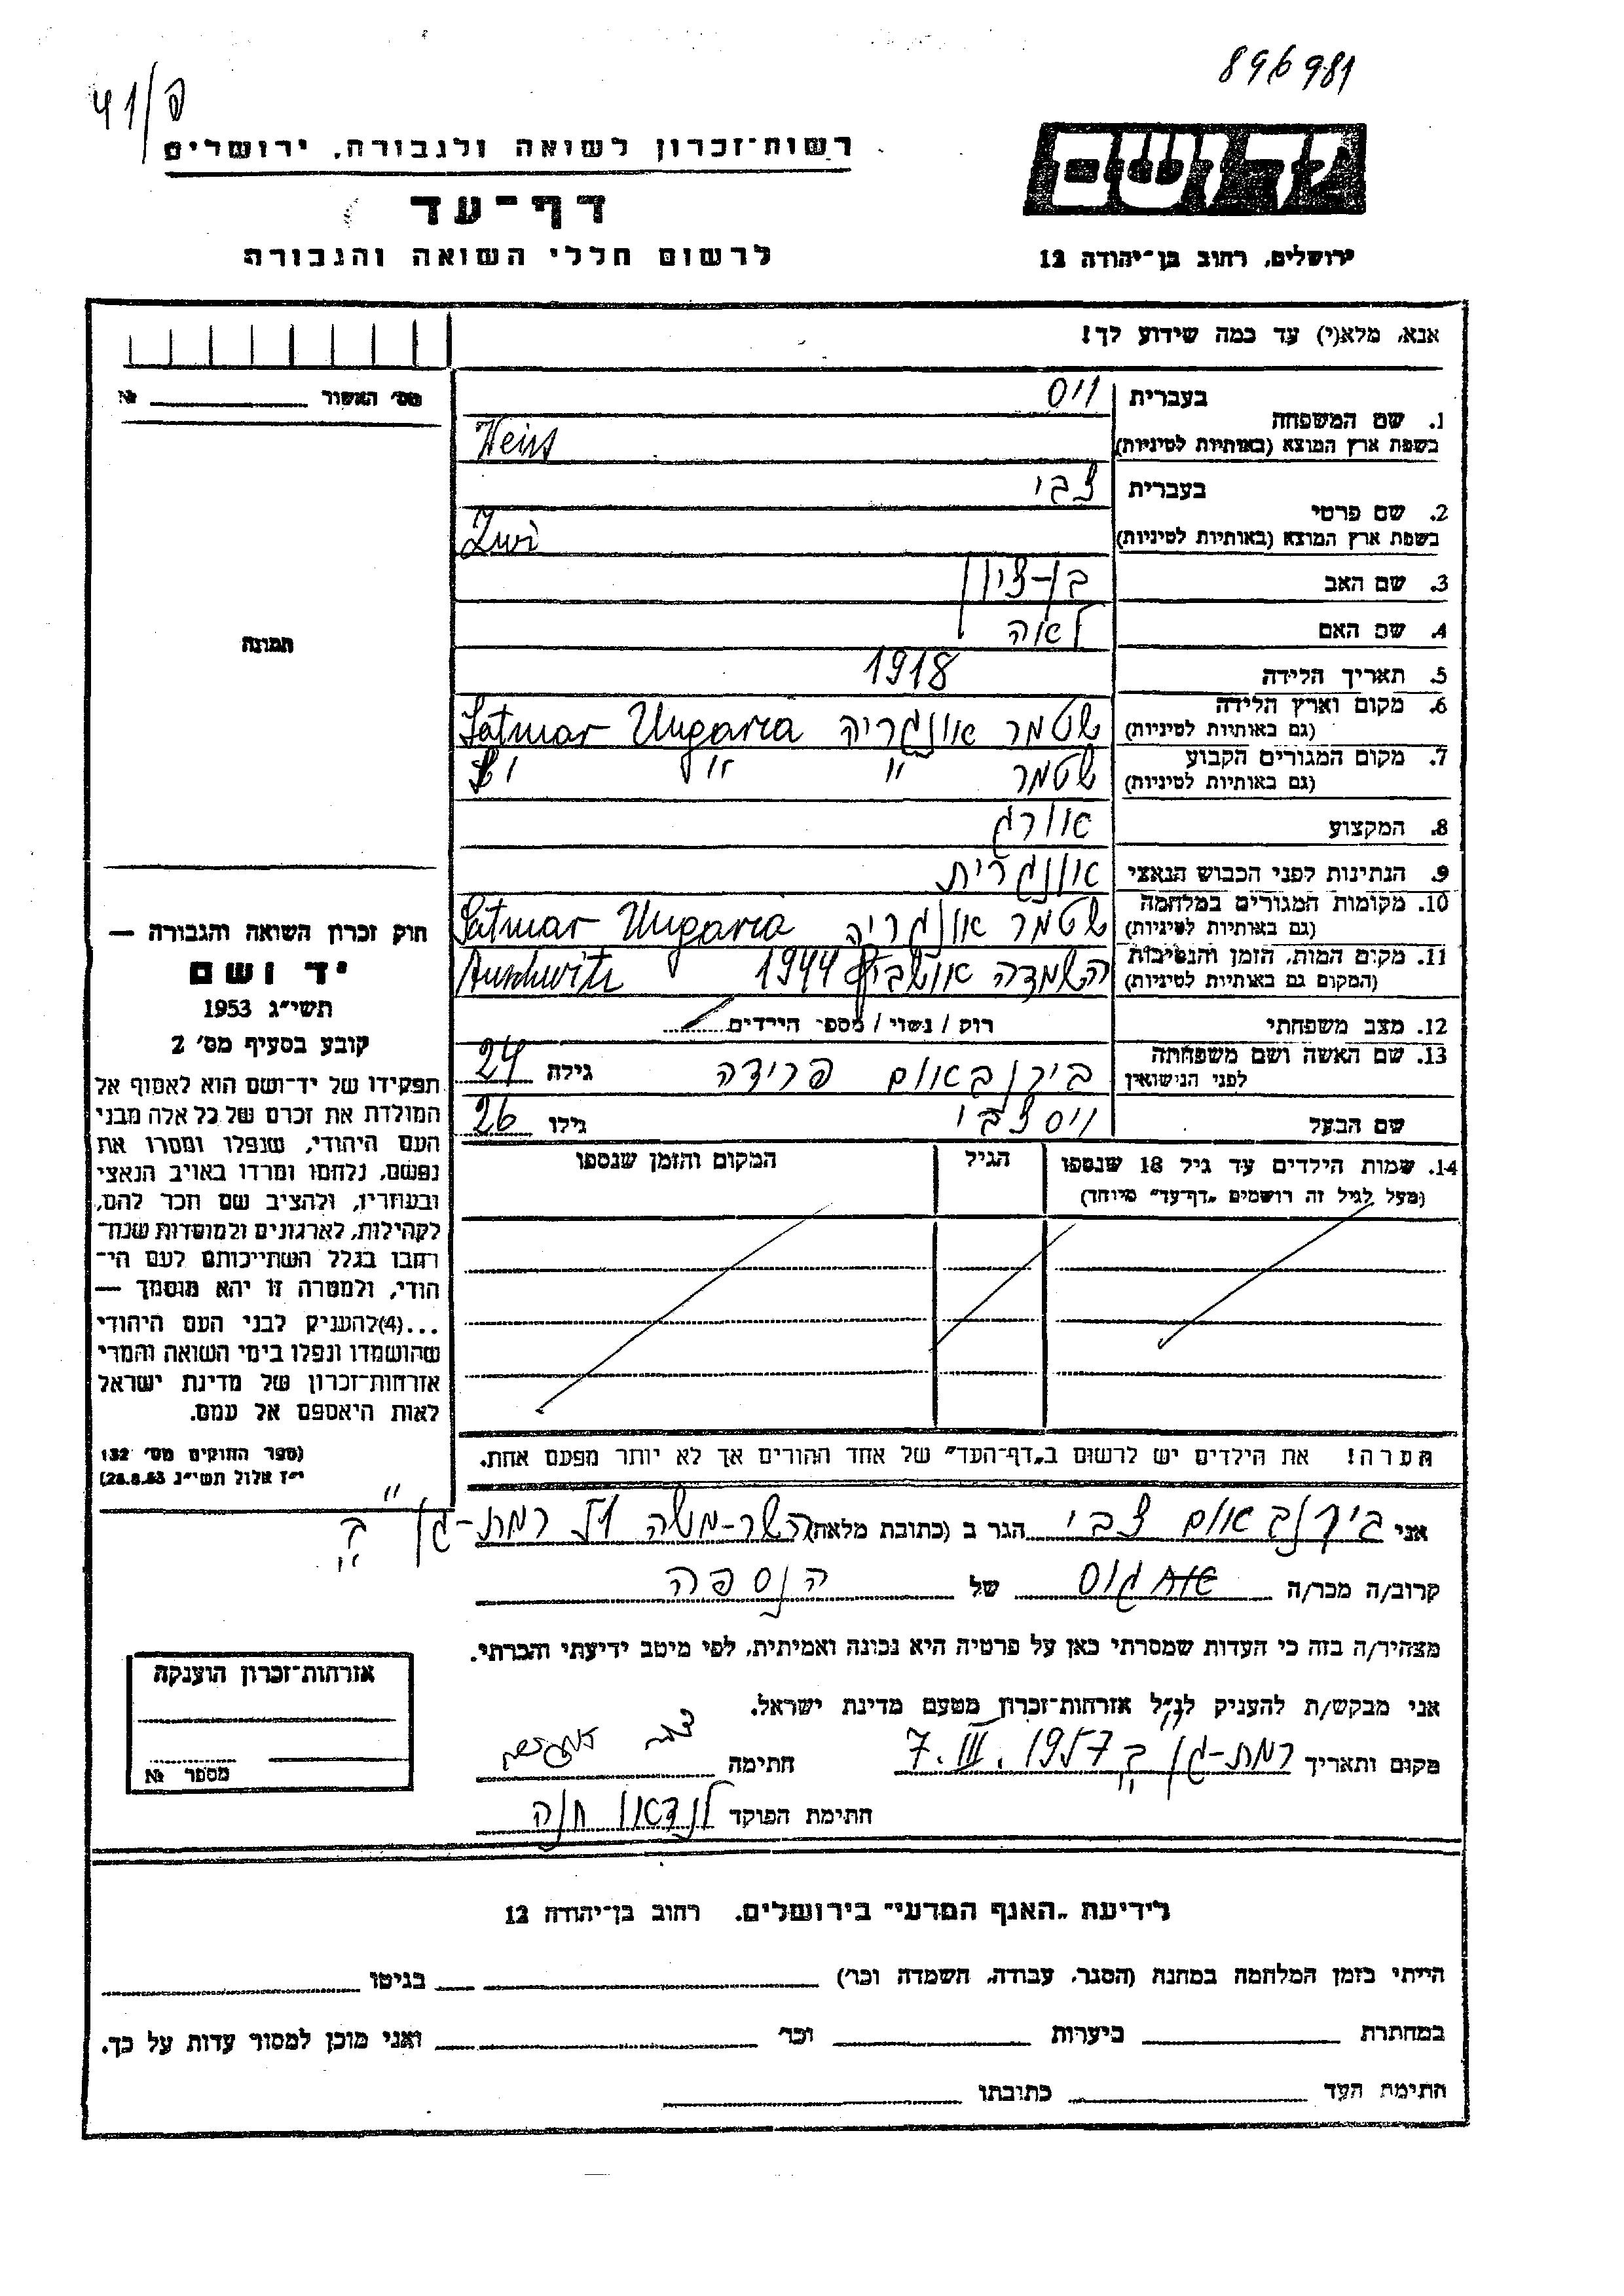 896981
פ/41
יד ושם
ירושלים, רחוב בן־יהודה 12
רשות־זכרון לשואה ולגבורה, ירושלים
דף־עד
לרשום חללי השואה והגבורה
אנא, מלא(י) עד כמה שידוע לך!
מס' האשור № 
1. שם המשפחה בעברית וייס
בשפת ארץ המוצא (באותיות לטיניות) Weiss
2. שם פרטי בעברית צבי
בשפת ארץ המוצא (באותיות לטיניות) Zwi
3. שם האב בן-ציון
4. שם האם לאה
תמונה
5. תאריך הלידה 1918
6. מקום וארץ הלידה (גם באותיות לטיניות) שטמר אונגריה Satmar Ungaria
7. מקום המגורים הקבוע (גם באותיות לטיניות) שטמר " " "
8. המקצוע אורג
9. הנתינות לפני הכבוש הנאצי אונגרית
10. מקומות המגורים במלחמה (גם באותיות לטיניות) שטמר אונגריה Satmar Ungaria
11. מקום המות, הזמן והנסיבות (המקום גם באותיות לטיניות) השמדה אושביץ 1944 Auschwitz
12. מצב משפחתי רוק / נשוי / מספר הילדים
13. שם האשה ושם משפחתה לפני הנישואין בירנבאום פרידה גילה 24
שם הבעל וייס צבי גילו 26
14. שמות הילדים עד גיל 18 שנספו הגיל המקום והזמן שנספו
(מעל לגיל זה רושמים „דף־עד” מיוחד)
הערה! את הילדים יש לרשום ב„דף־העד” של אחד ההורים אך לא יותר מפעם אחת.
חוק זכרון השואה והגבורה —
יד ושם
תשי״ג 1953
קובע בסעיף מס' 2
תפקידו של יד־ושם הוא לאסוף אל
המולדת את זכרם של כל אלה מבני
העם היהודי, שנפלו ומסרו את
נפשם, נלחמו ומרדו באויב הנאצי
ובעוזריו, ולהציב שם וזכר להם,
לקהילות, לארגונים ולמוסדות שנח־
רבו בגלל השתייכותם לעם הי־
הודי, ולמטרה זו יהא מוסמך —
...(4) להעניק לבני העם היהודי
שהושמדו ונפלו בימי השואה והמרי
אזרחות־זכרון של מדינת ישראל
לאות היאספם אל עמם.
(ספר החוקים מס' 132
י״ז אלול תשי״ג 28.8.53)
אני בירנבאום צבי הגר ב (כתובת מלאה) השר-משה 51 רמת-גן "ב"
קרוב/ה מכר/ה גיס של הנספה
מצהיר/ה בזה כי העדות שמסרתי כאן על פרטיה היא נכונה ואמיתית, לפי מיטב ידיעתי והכרתי.
אני מבקש/ת להעניק לנ״ל אזרחות־זכרון מטעם מדינת ישראל.
מקום ותאריך רמת-גן ב' 7.III.1957 חתימה
חתימת הפוקד לנדאו חנה
אזרחות־זכרון הוענקה
מספר №
לידיעת „האגף המדעי” בירושלים. רחוב בן־יהודה 12
הייתי בזמן המלחמה במחנה (הסגר, עבודה, השמדה וכר') בגיטו
במחתרת ביערות וכר' ואני מוכן למסור עדות על כך.
חתימת העד כתובתו